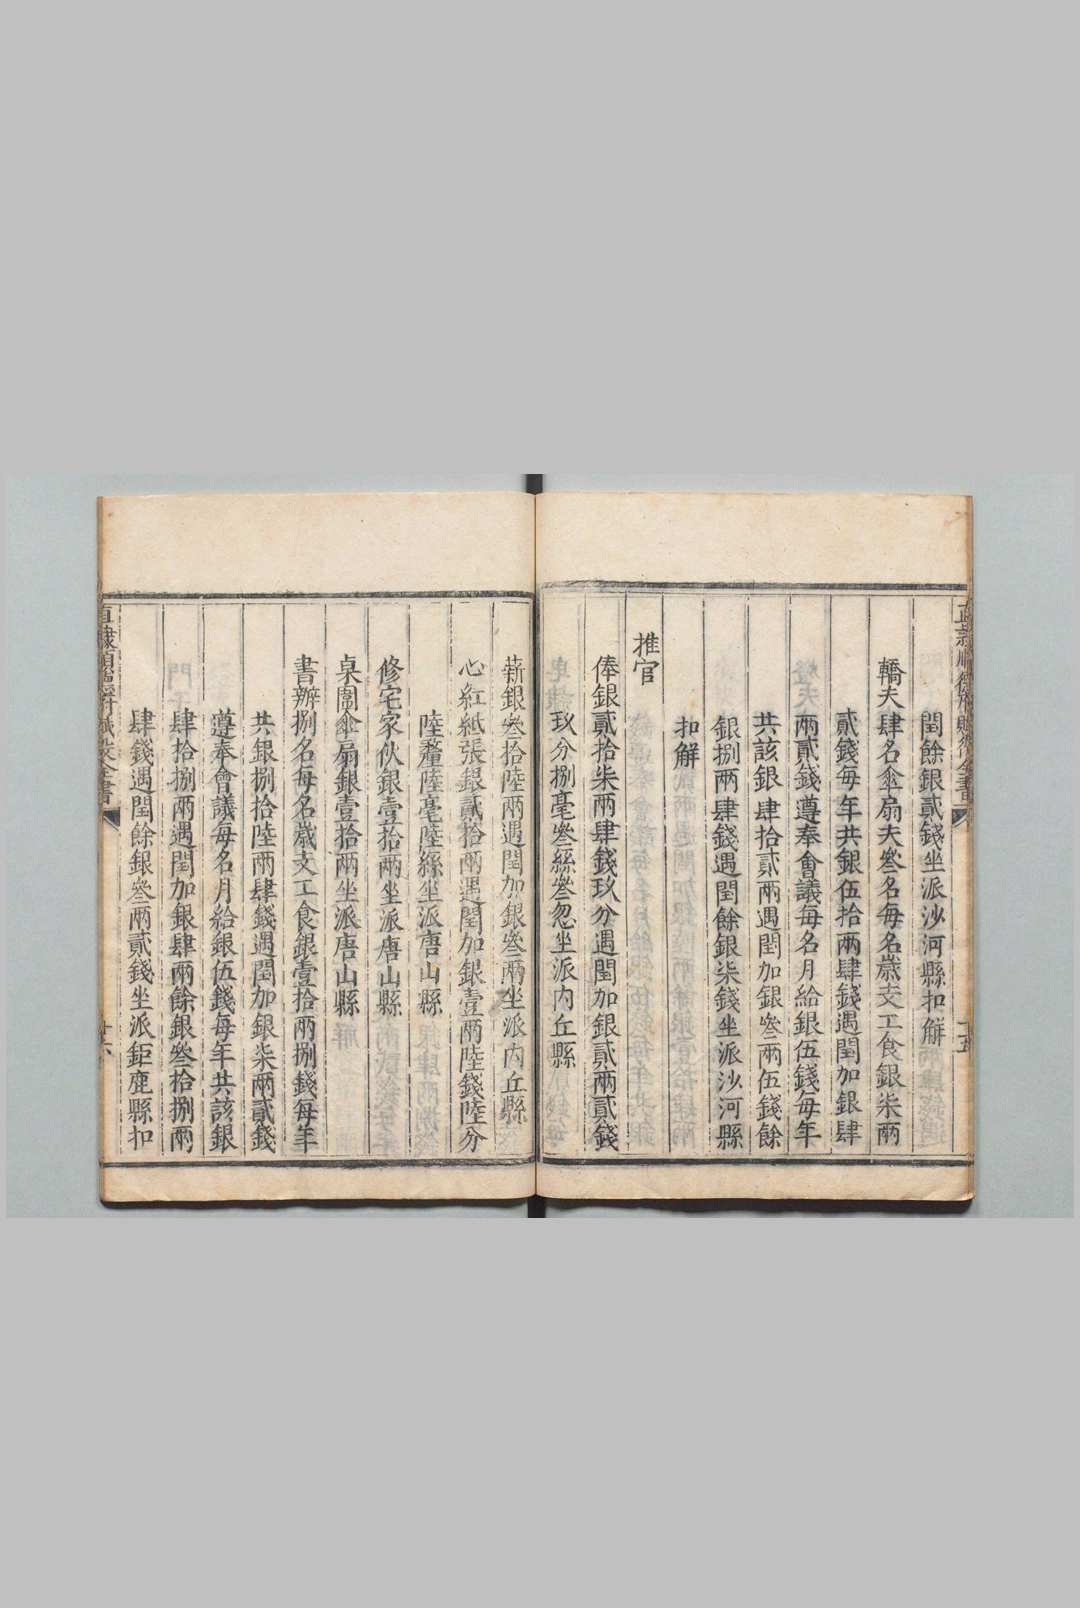 閏餘銀貳錢坐派沙河縣扣解
轎夫肆名傘扇夫叄名每名歲支工食銀柒兩
貳錢每年共銀伍拾兩肆錢遇閏加銀肆
兩貳錢遵奉會議每名月給銀伍錢每年
共該銀肆拾貳兩遇閏加銀叄兩伍錢餘
銀捌兩肆錢遇閏餘銀柒錢坐派沙河縣
扣解
推官
俸銀貳拾柒兩肆錢玖分遇閏加銀貳兩貳錢
玖分捌毫叄絲叄忽坐派內丘縣
薪銀叄拾陸兩遇閏加銀叄兩坐派內丘縣
心紅紙張銀貳拾兩遇閏加銀壹兩陸錢陸分
陸釐陸毫陸絲坐派唐山縣
修宅家伙銀壹拾兩坐派唐山縣
桌圍傘扇銀壹拾兩坐派唐山縣
書辦捌名每名歲支工食銀壹拾兩捌錢每年
共銀捌拾陸兩肆錢遇閏加銀柒兩貳錢
遵奉會議每名月給銀伍錢每年共該銀
肆拾捌兩遇閏加銀肆兩餘銀叄拾捌兩
肆錢遇閏餘銀叄兩貳錢坐派鉅鹿縣扣